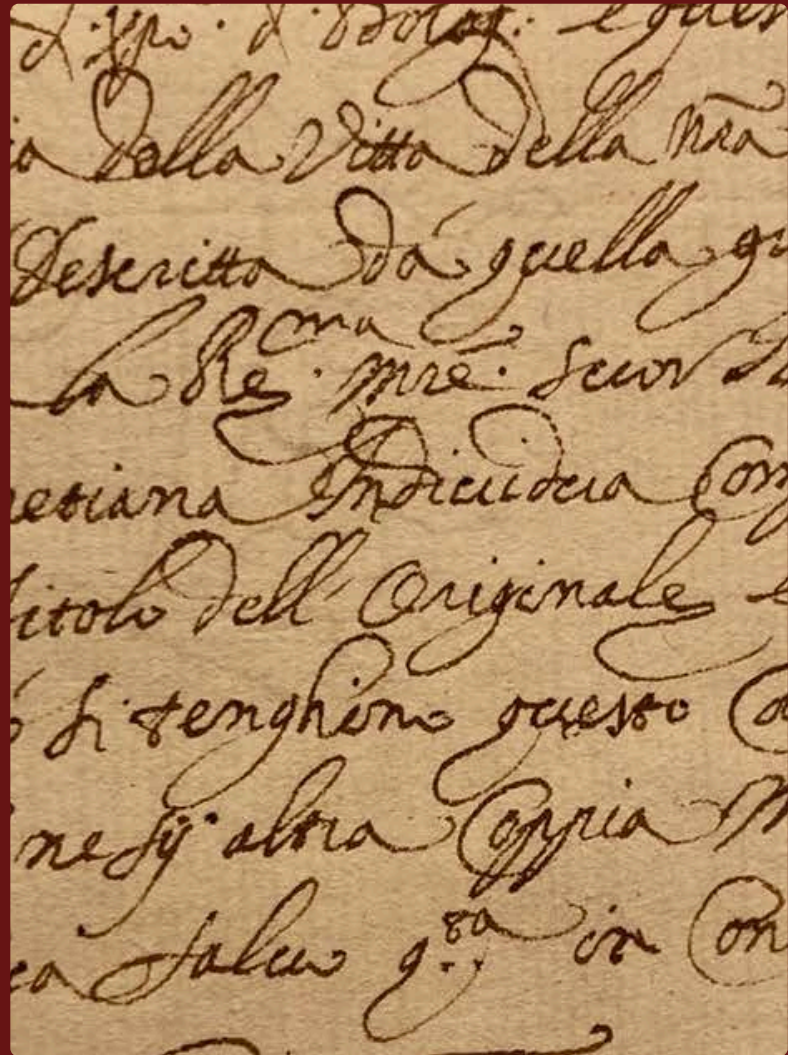 d. Xpo. d. Bolog. e ques
ia della Vitta della nra
Descritta dá quella qu
la Re.ma mrē. Suor
netiana Indiuidua Com
titolo dell' Originale e
si tenghino questo
ne sij altra Coppia
salua q.ta in Con